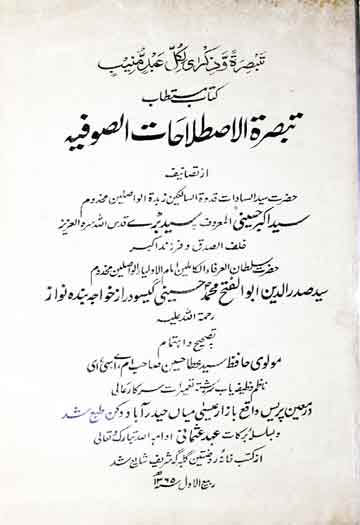 تبصرة وذكرى لكل عبد منيب
کتاب مستطاب
تبصرة الاصطلاحات الصوفیه
از تصانیف
حضرت سید السادات قدوة السالکین زبدة الواصلین مخدوم
سید اکبر حسینی المعروف به سید بڑے قدس الله سره العزیز
خلف الصدق و فرزند اکبر
حضرت سلطان العرفاء الکاملین امام الاولیاء الواصلین مخدوم
سید صدر الدین ابو الفتح محمد حسینی گیسودراز خواجه بنده نواز
رحمة الله علیه
بتصحیح و اهتمام
مولوی حافظ سید عطا حسین صاحب ام، اے، سی، ای
ناظم وظیفه یاب سررشته تعمیرات سرکار عالی
در معین پریس واقع بازار عیسی میاں حیدرآباد دکن طبع شد
و بسلسله برکات عهد عثمانی ادامه الله تبارک و تعالی
از کتب خانه روضتین گلبرگه شریف شایع شد
ربیع الاول سنه ۱۳۶۵ھ